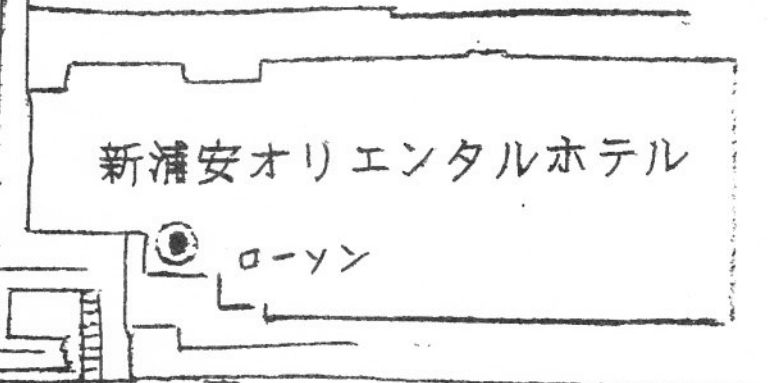 新浦安オリエンタルホテル
ローソン